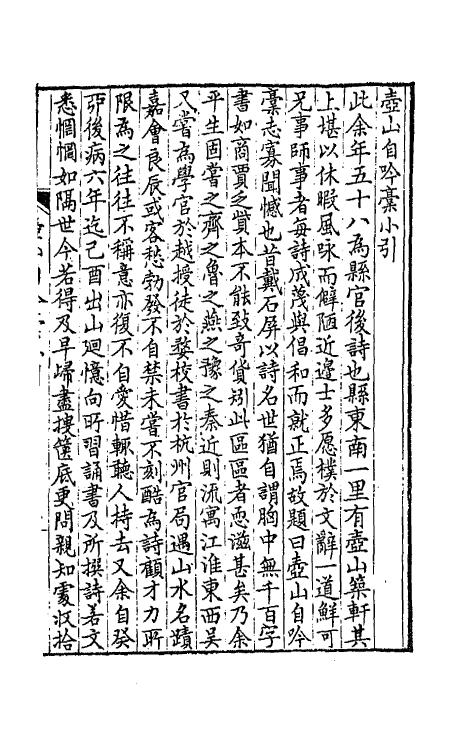 壺山自吟藁小引
此余年五十八為縣官後詩也縣東南一里有壺山築軒其
上堪以休暇風咏而鮮陋近邊士多愿樸於文辭一道鮮可
兄事師事者每詩成茂與倡和而就正焉故題曰壺山自吟
藁志寡聞憾也昔戴石屏以詩名世猶自謂胸中無千百字
書如商賈乏貲本不能致奇貨矧此區區者恧滋甚矣乃余
平生固嘗之齊之魯之燕之豫之秦近則流寓江淮東西吳
又嘗為學官於越授徒於婺校書於杭州官局遇山水名蹟
嘉會良辰或客愁勃發不自禁未嘗不刻酷為詩顧才力所
限為之往往不稱意亦復不自愛惜輒聽人持去又余自癸
卯後病六年迄己酉出山迴憶向所習誦書及所撰詩若文
悉惘惘如隔世今若得及早歸盡搜篋底更問親知處收拾